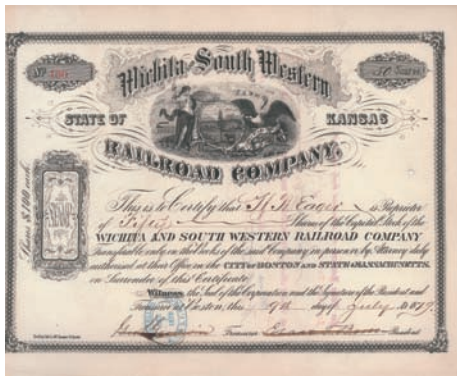 No
50 Shares
Wichita and South Western
STATE OF KANSAS
RAILROAD COMPANY.
Shares $100 each.
This is to Certify that H R Eager is Proprietor
of Fifty Shares of the Capital Stock of the
WICHITA AND SOUTH WESTERN RAILROAD COMPANY
transferable only on the Books of the said Company in person or by Attorney duly
authorized at their Office in the CITY OF BOSTON AND STATE OF MASSACHUSETTS.
on Surrender of this Certificate.
Witness, the Seal of the Corporation and the Signature of the President and
Treasurer at Boston, this 9th day of July 1879.
Treasurer President